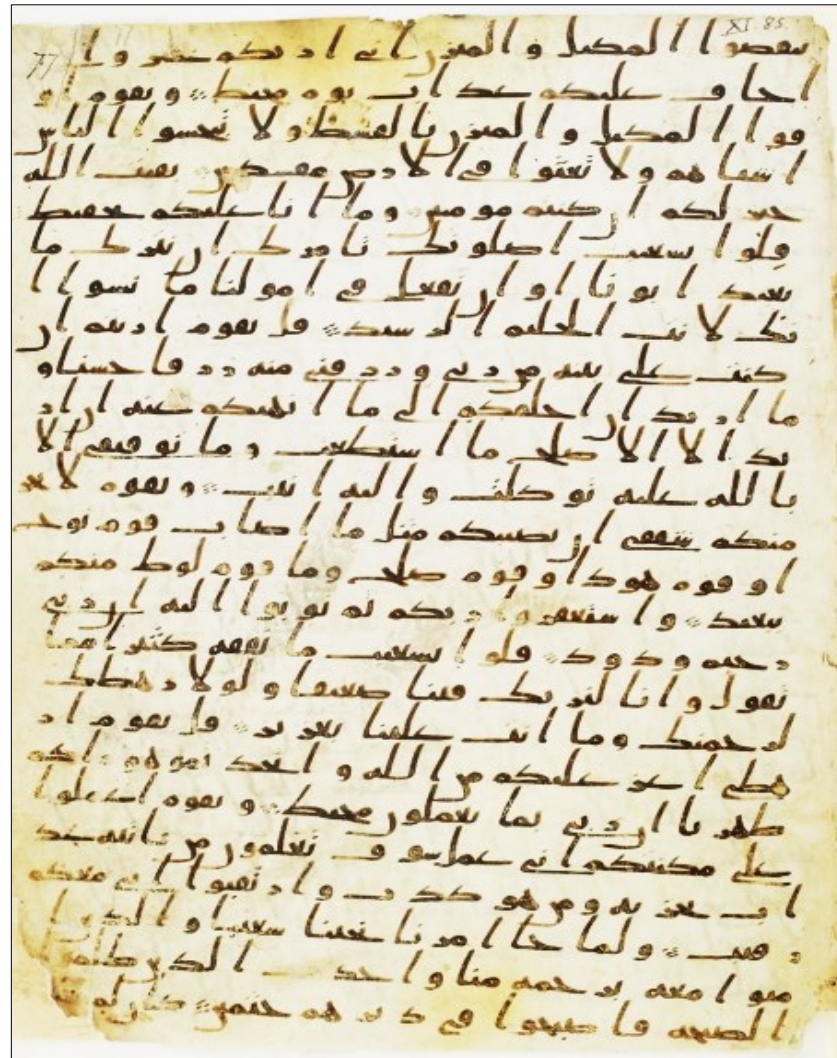 XI. 85.
تنقصوا المكيل و الميزن اني اريكم بخير و ا
خاف عليكم عذاب يوم محيط و يقوم او
فوا المكيل و الميزن بالقسط و لا تبخسوا الناس
اشياهم و لا تعثوا في الارض مفسدين بقيت الله
خير لكم ان كنتم مومنين و ما انا عليكم بحفيظ
قلوا يشعيب اصلوتك تامرك ان نترك ما
يعبد اباونا او ان نفعل في امولنا ما نشوا ا
نك لانت الحليم الرشيد قل يقوم اريتم ان
كنت على بينه من ربي و رزقني منه رزقا حسنا و
ما اريد ان اخلفكم الى ما انهيكم عنه ان ار
يد الا الاصلح ما استطعت و ما توفيقي الا
بالله عليه توكلت و اليه انيب و يقوم لا يجر
منكم شققي ان يصيبكم مثل ما اصاب قوم نوح
او قوم هودا و قوم صلح و ما قوم لوط منكم
ببعيد و استغفروا ربكم ثم توبوا اليه ان ربي
رحيم ودود قلوا يشعيب ما نفقه كثيرا مما
تقول و انا لنريك فينا ضعيفا و لولا رهطك
لرجمنك و ما انت علينا بعزيز قل يقوم ار
هطي اعز عليكم من الله و اتخذتموه وراكم
ظهريا ان ربي بما تعملون محيط و يقوم اعملوا
على مكنتكم اني عمل سوف تعلمون من ياتيه عذ
اب يخزيه و من هو كذب و ارتقبوا اني معكم
رقيب و لما جا امرنا نجينا شعيبا و الذين ا
منوا معه برحمه منا و اخذت الذين ظلموا
الصيحه فاصبحوا في ديرهم جثمين كان لم